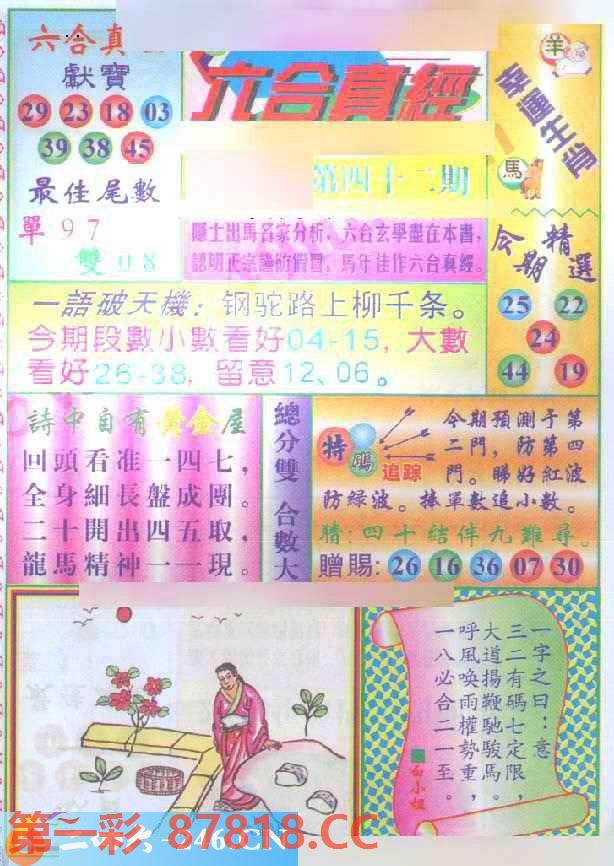 六合真
獻寶
29 23 18 03
39 38 45
最佳尾數
單 9 7
雙 0 8
六合真經
第四十二期
隱士出馬名家分析，六合玄學盡在本書，
認明正宗謹防假冒，馬年佳作六合真經。
羊
幸運生肖
馬
今期精選
25 22
24
44 19
一語破天機：钢驼路上柳千条。
今期段數小數看好04-15，大數
看好26-38，留意12、06。
詩中自有黃金屋
回頭看准一四七，
全身細長盤成團。
二十開出四五取，
龍馬精神一一現。
總分雙 合數大
特碼
追踪
今期預測予第
二門，防第四
門。睇好紅波
防緑波。捧單數追小數。
猜：四十结伴九難尋。
贈賜：26 16 36 07 30
一字之曰：意
三二有碼七定限，
大道揚鞭馳駿馬。
呼風喚雨權勢重，
一八必合二一至。
白小姐
第一彩.87818.CC
246.CN